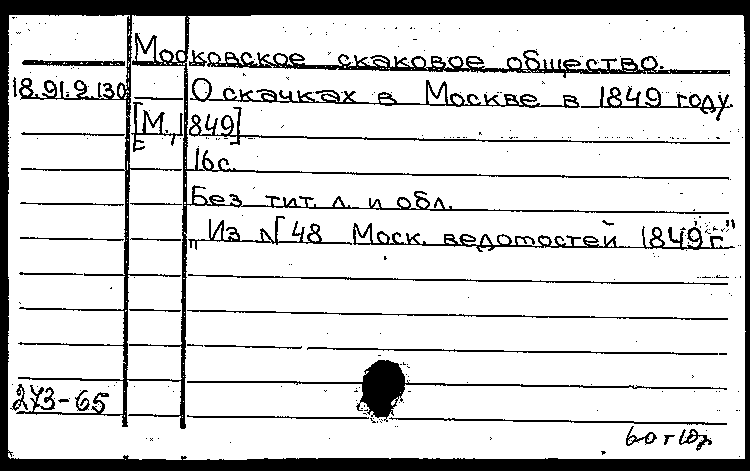 Московское скаковое общество.
18.91.9.130 О скачках в Москве в 1849 году.
[М., 1849]
16с.
Без тит. л. и обл.
„Из № 48 Моск. ведомостей 1849 г."
273-65